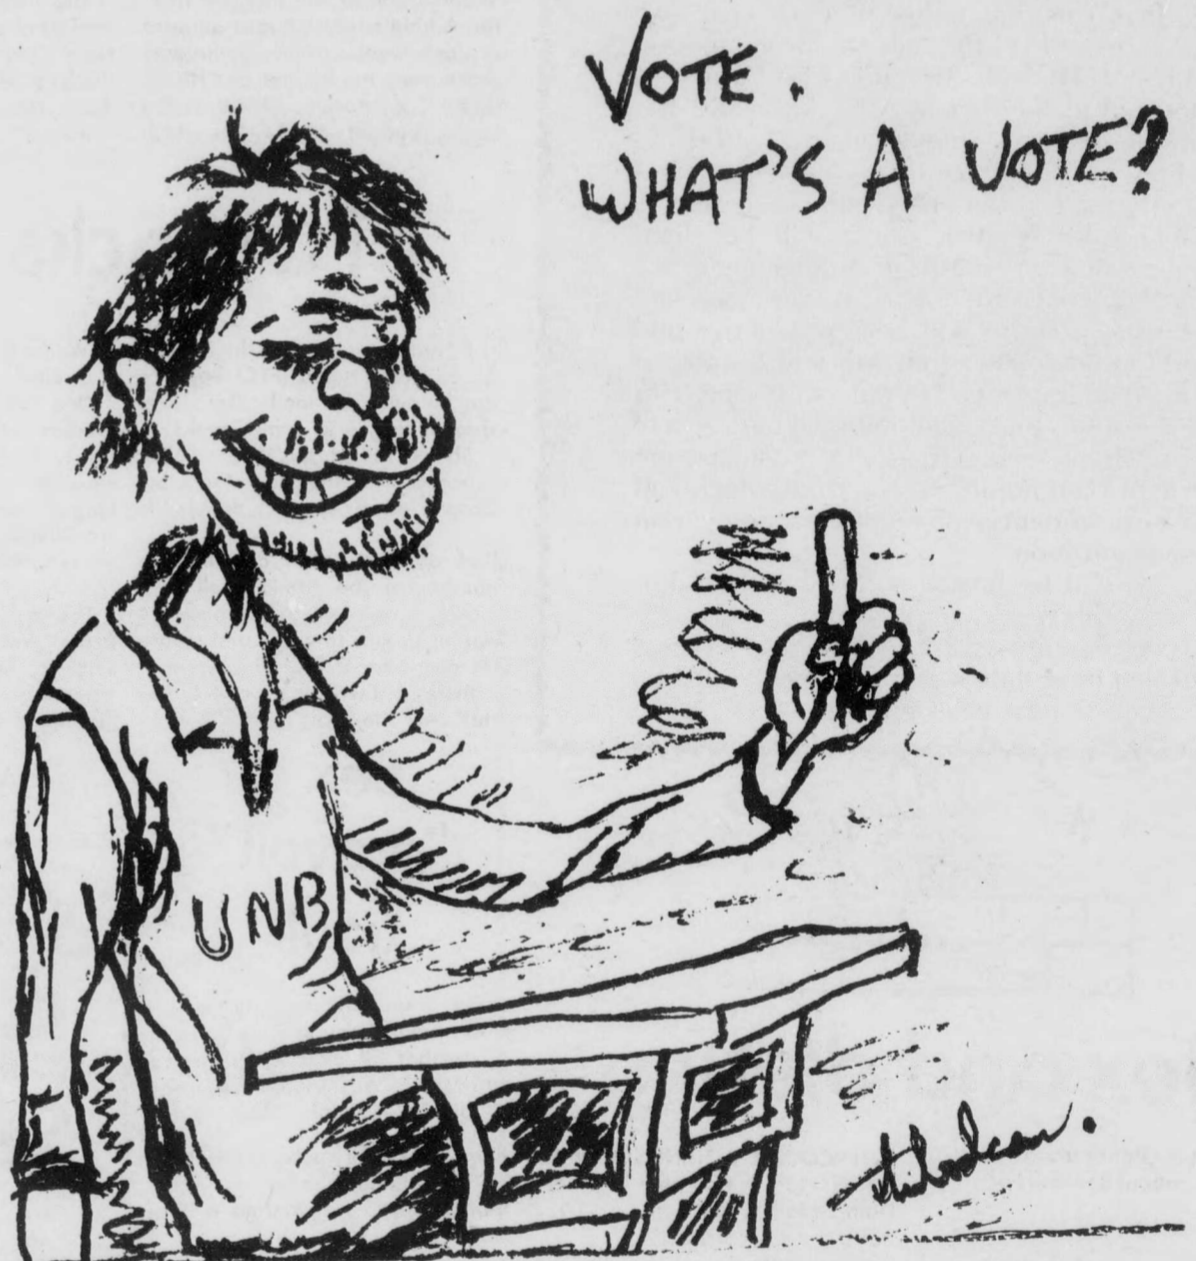 VOTE.
WHAT'S A VOTE?
UNB